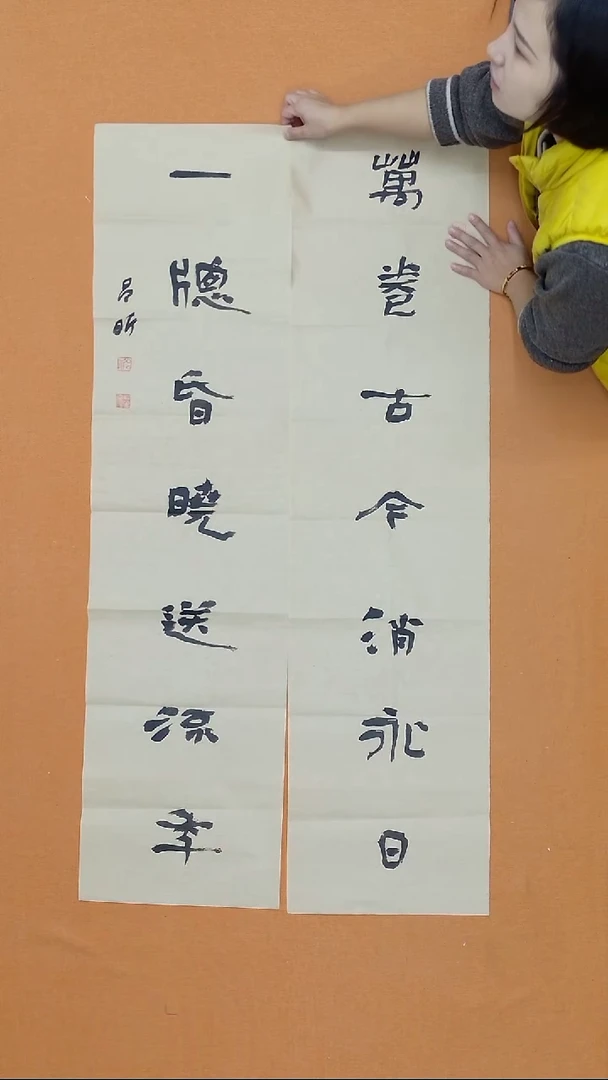 萬卷古今消永日
一牕昏曉送流年
吕昕